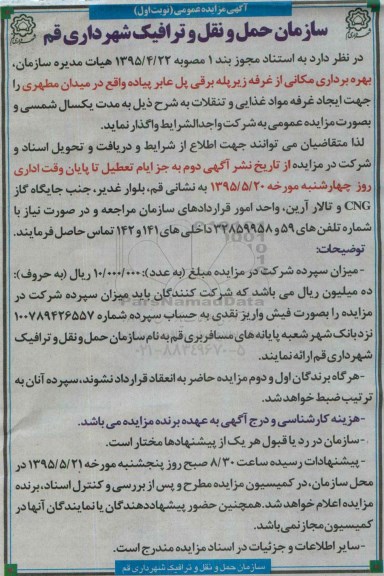 آگهی مزایده عمومی (نوبت اول)
سازمان حمل و نقل و ترافیک شهرداری قم
در نظر دارد به استناد مجوز بند ۱ مصوبه ۱۳۹۵/۴/۲۲ هیات مدیره سازمان،
بهره برداری مکانی از غرفه زیر پله برقی پل عابر پیاده واقع در میدان مطهری را
جهت ایجاد غرفه مواد غذایی و تنقلات به شرح ذیل به مدت یکسال شمسی و
بصورت مزایده عمومی به شرکت واجدالشرایط واگذار نماید.
لذا متقاضیان می توانند جهت اطلاع از شرایط و دریافت و تحویل اسناد و
شرکت در مزایده از تاریخ نشر آگهی دوم به جز ایام تعطیل تا پایان وقت اداری
روز چهارشنبه مورخه ۱۳۹۵/۵/۲۰ به نشانی قم، بلوار غدیر، جنب جایگاه گاز
CNG و تالار آرین، واحد امور قراردادهای سازمان مراجعه و در صورت نیاز با
شماره تلفن های ۵۹ و ۳۲۸۵۹۹۵۸ داخلی های ۱۴۱ و ۱۴۲ تماس حاصل فرمایند.
توضیحات:
-میزان سپرده شرکت در مزایده مبلغ (به عدد): ۱۰/۰۰۰/۰۰۰ ریال (به حروف):
ده میلیون ریال می باشد که شرکت کنندگان باید میزان سپرده شرکت در
مزایده را بصورت فیش واریز نقدی به حساب سپرده شماره ۱۰۰۷۸۹۴۲۶۵۵۷
نزد بانک شهر شعبه پایانه های مسافربری قم به نام سازمان حمل و نقل و ترافیک
شهرداری قم ارائه نمایند.
-هرگاه برندگان اول و دوم مزایده حاضر به انعقاد قرارداد نشوند، سپرده آنان به
ترتیب ضبط خواهد شد.
-هزینه کارشناسی و درج آگهی به عهده برنده مزایده می باشد.
-سازمان در رد یا قبول هر یک از پیشنهادها مختار است.
-پیشنهادات رسیده ساعت ۸/۳۰ صبح روز پنجشنبه مورخه ۱۳۹۵/۵/۲۱ در
محل سازمان، در کمیسیون مزایده مطرح و پس از بررسی و کنترل اسناد، برنده
مزایده اعلام خواهد شد. همچنین حضور پیشنهاددهندگان یا نمایندگان آنها در
کمیسیون مجاز نمی باشد.
-سایر اطلاعات و جزئیات در اسناد مزایده مندرج است.
سازمان حمل و نقل و ترافیک شهرداری قم
ParsNamadData
۰۲۱-۸۸۳۴۹۶۷۰-۵